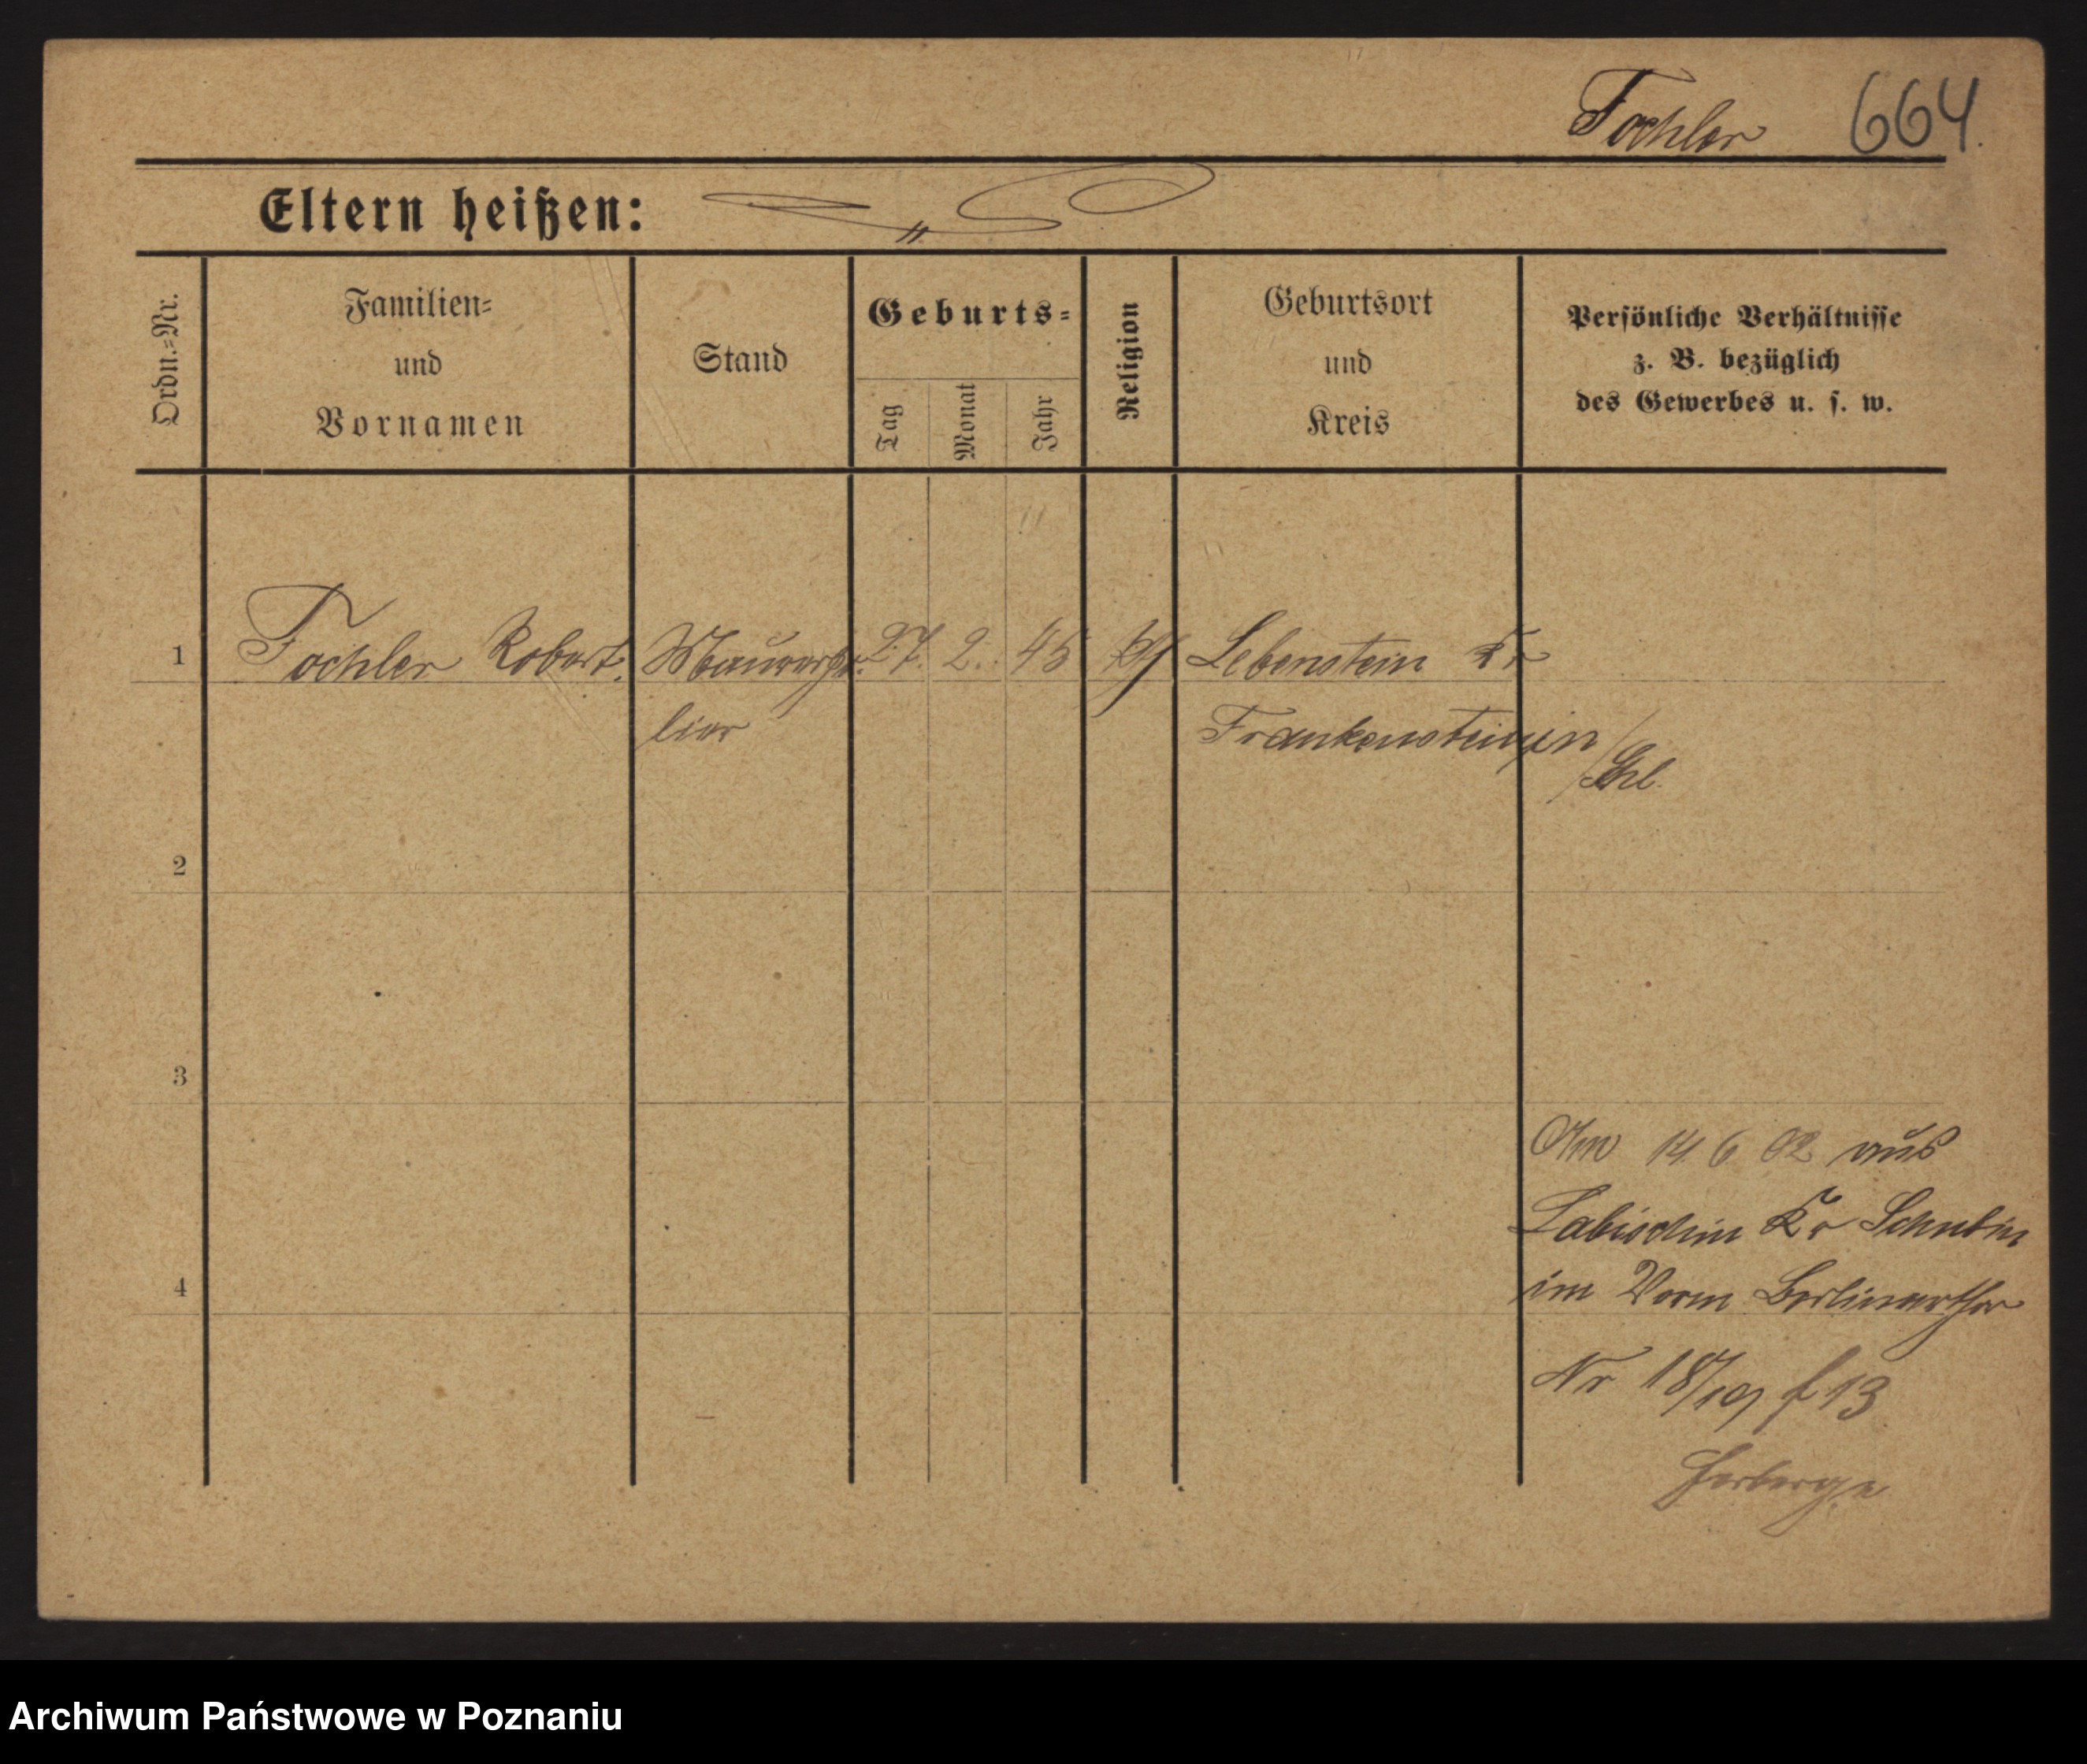 Fochler 664.
Eltern heißen:
Ordn.=Nr.
Familien=
und
Vornamen
Stand
Geburts=
Tag
Monat
Jahr
Religion
Geburtsort
und
Kreis
Persönliche Verhältnisse
z. B. bezüglich
des Gewerbes u. s. w.
1 Fochler Robert. 27. 2. 45 Lebenstein Kr
lier Frankenstein in
Schl.
2
3
Am 14 6 02 aus
Labischin Kr Schubin
4 im Vorm Berlinerthor
Nr 18/19 f 13
Herberge
Archiwum Państwowe w Poznaniu